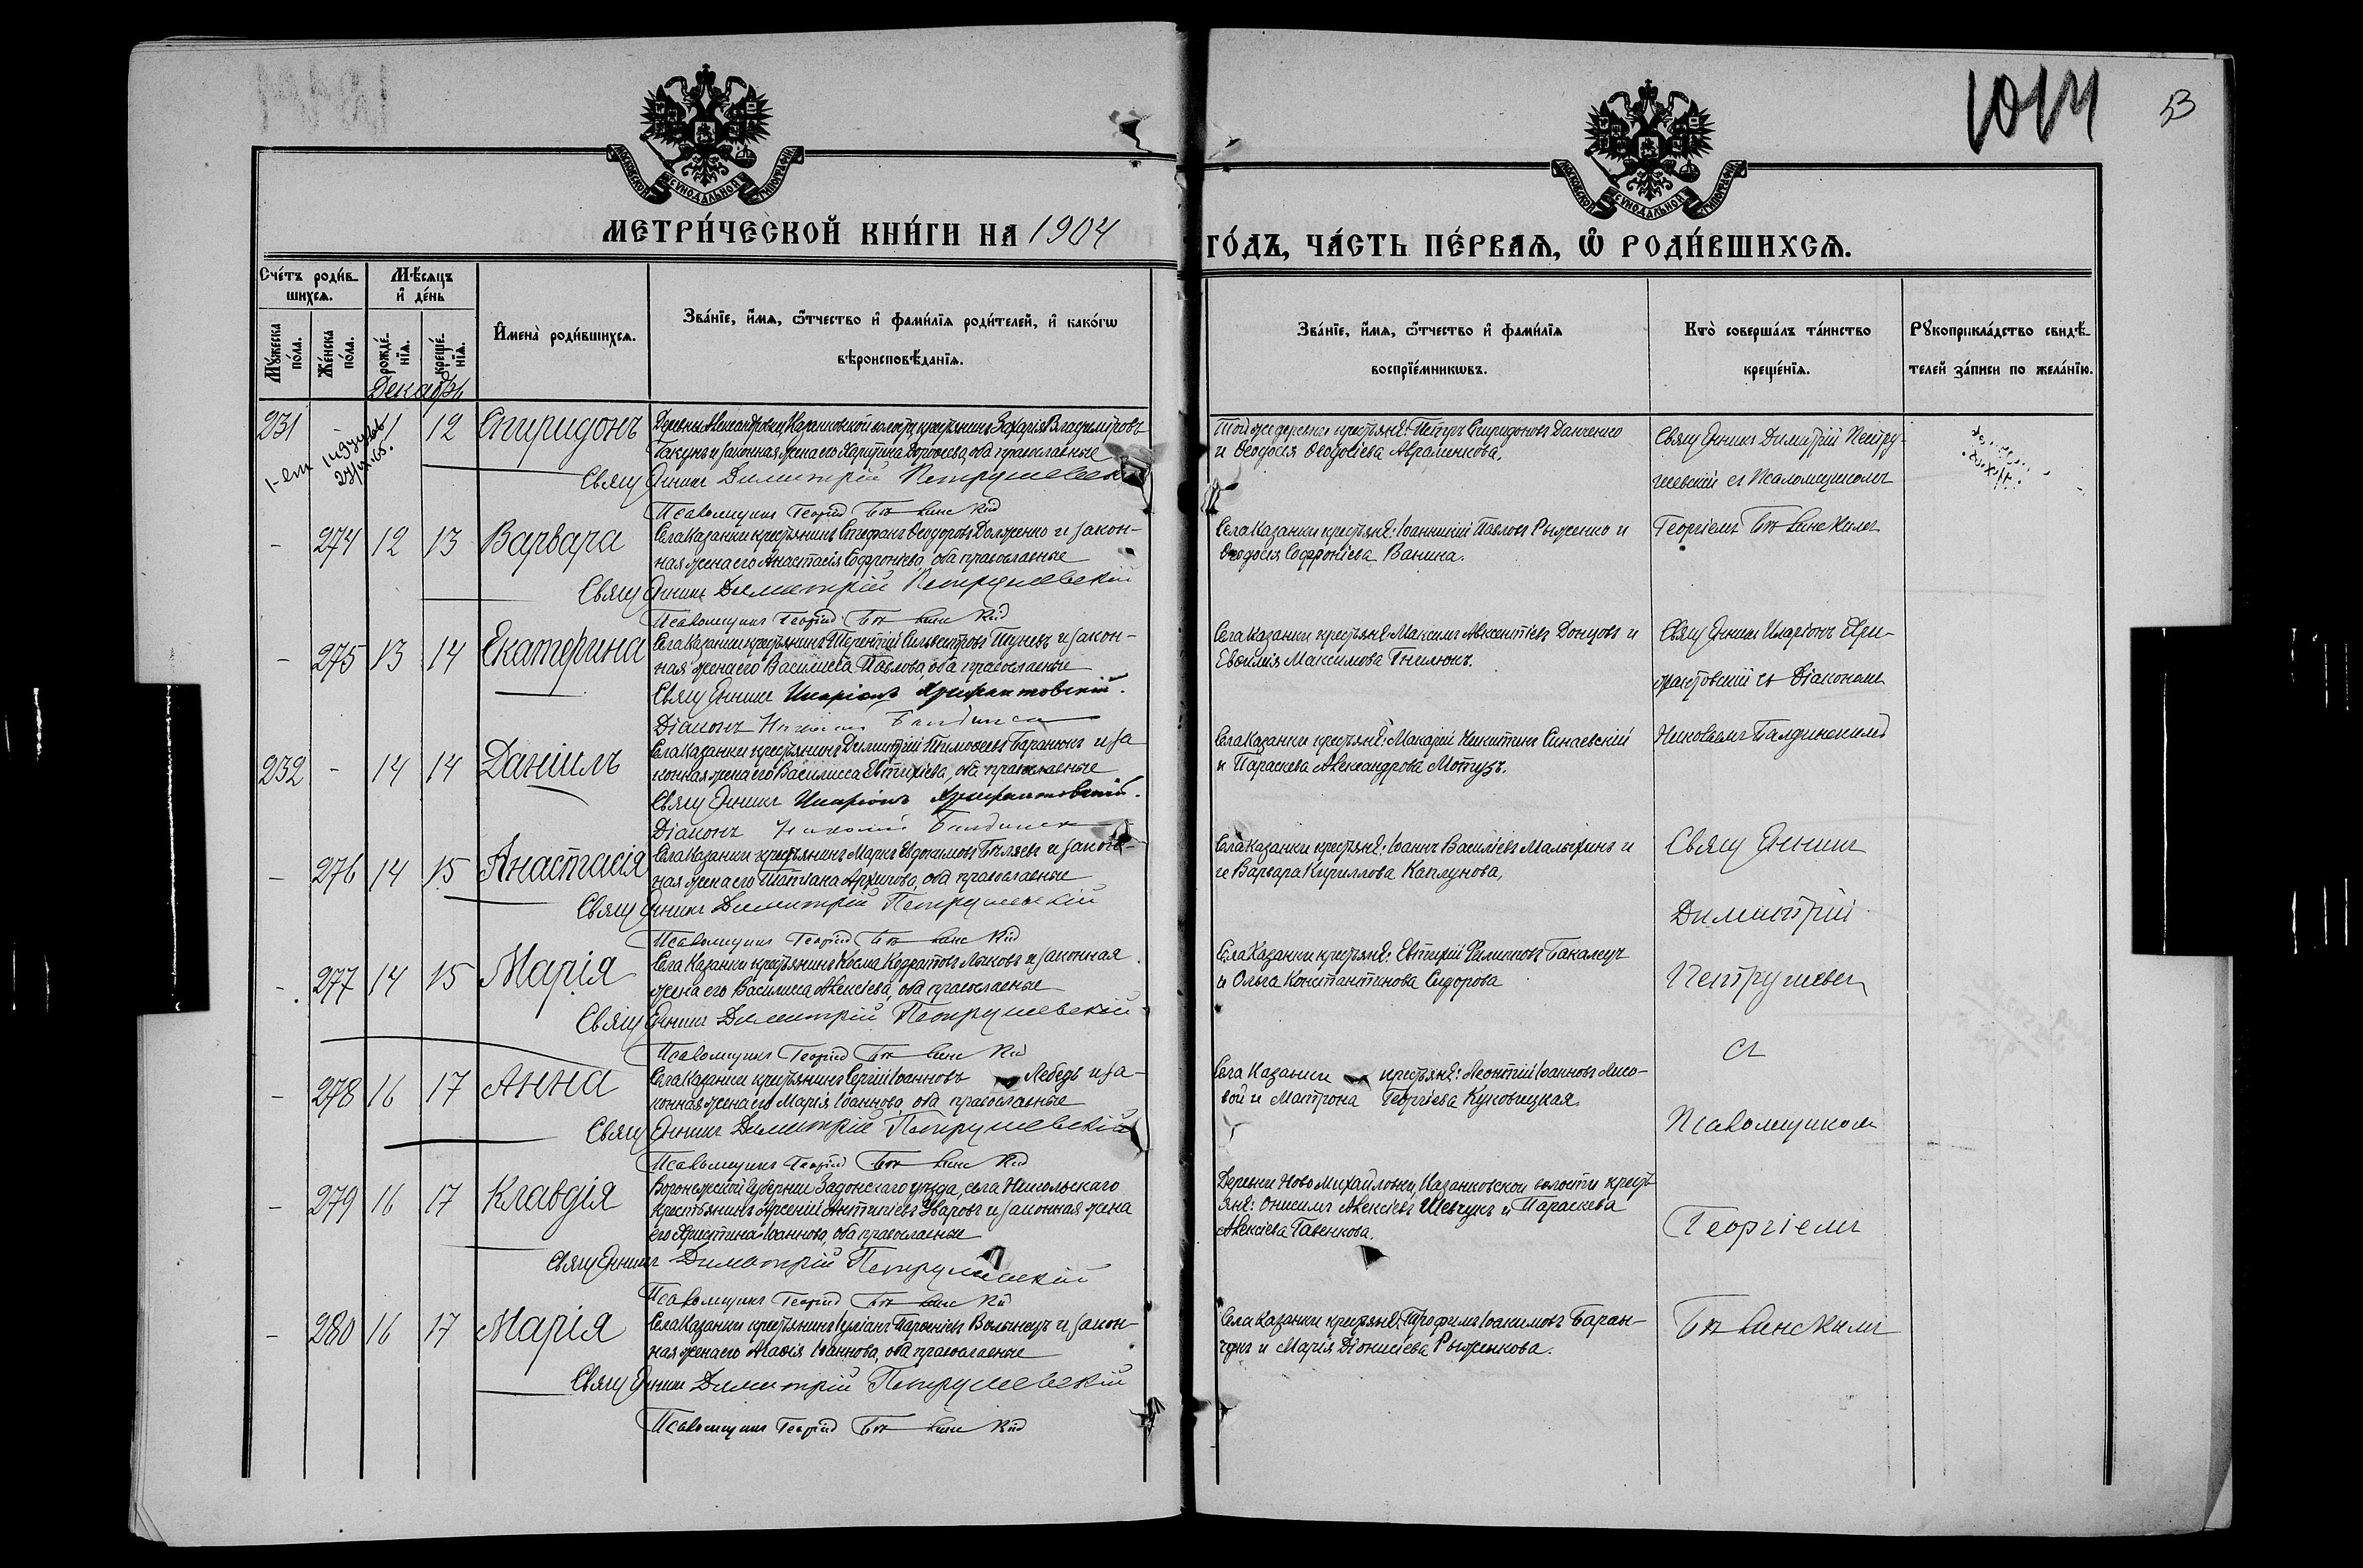 1014
53
МОСКОВСКОЙ СѴНОДАЛЬНОЙ ТИПОГРАФІИ
МОСКОВСКОЙ СѴНОДАЛЬНОЙ ТИПОГРАФІИ
МЕТРИ́ЧЕСКОЙ КНИ́ГИ НА 1904
ГО́ДЪ, ЧА́СТЬ ПЕ́РВАѦ, Ѽ РОДИ́ВШИХСѦ.
Сче́тъ роди́в-
шихсѧ.
Мѣ́сяцъ
и҆ де́нь
Мꙋ́жеска
по́ла.
Же́нска
по́ла.
рожде́-
нїѧ.
креще́-
нїѧ.
И҆мена̀ роди́вшихсѧ.
Зва́нїе, и҆́мѧ, ѻ҆́тчество и҆ фами́лїѧ роди́телей, и҆ како́гѡ
вѣроисповѣ́данїѧ.
Зва́нїе, и҆́мѧ, ѻ҆́тчество и҆ фами́лїѧ
воспрїе́мникѡвъ.
Кто̀ соверша́лъ та́инство
креще́нїѧ.
Рꙋкоприкла́дство свидѣ́-
телей за́писи по жела́нїю.
Декабрь
231 - 11 12 Спиридонъ
Деревни Александровки, Казанковской волости, крестьянинъ Захарія Владиміровъ
и законная жена его Харитина Дорофеева, оба православные
Священникъ Димитрій Петрушевскій
Псаломщикъ Георгій
Той же деревни крестьяне: Петръ Спиридоновъ Данченко
и Ѳеодосія Ѳеодосіева Авраменкова.
Священникъ Димитрій Петру-
шевскій съ Псаломщикомъ
Георгіемъ
- 274 12 13 Варвара
Села Казанки крестьянинъ Стефанъ Ѳеодоровъ Долженко и закон-
ная жена его Анастасія Софроніева, оба православные
Священникъ Димитрій Петрушевскій
Псаломщикъ Георгій
Села Казанки крестьяне: Іоанникій Павловъ Рыженко и
Ѳеодосія Софроніева Ванина.
- 275 13 14 Екатерина
Села Казанки крестьянинъ Терентій Сильвестровъ и закон-
ная жена его Павлова, оба православные
Священникъ Иларіонъ
Діаконъ Николай
Села Казанки крестьяне: Максимъ Авксентіевъ Донцовъ и
Евфимія Максимова Гнилюкъ.
Священникъ Иларіонъ
съ Діакономъ
Николаемъ Балдинскимъ
232 - 14 14 Даніилъ
Села Казанки крестьянинъ Димитрій Тимофеевъ Баранюкъ и за
конная жена его Василисса Евтихіева, оба православные
Священникъ Иларіонъ
Діаконъ Николай
Села Казанки крестьяне: Макарій Никитинъ Синаевскій
и Параскева Александрова Мотузъ.
- 276 14 15 Анастасія
Села Казанки крестьянинъ Маркъ Евдокимовъ Бѣляевъ и закон-
ная жена его Татіана Архипова, оба православные
Священникъ Димитрій Петрушевскій
Псаломщикъ Георгій
Села Казанки крестьяне: Іоаннъ Василіевъ Малыхинъ и
Варвара Кириллова Каплунова,
Священникъ
Димитрій
- 277 14 15 Марія
Села Казанки крестьянинъ Косма Кодратовъ Лыковъ и законная
жена его Василисса Алексіева, оба православные
Священникъ Димитрій Петрушевскій
Псаломщикъ Георгій
Села Казанки крестьяне: Евтихій Филиповъ Бакалецъ
и Ольга Константинова Сидорова
съ
- 278 16 17 Анна
Села Казанки крестьянинъ Сергій Іоанновъ Лебедь и за-
конная жена его Марія Іоаннова, оба православные
Священникъ Димитрій Петрушевскій
Псаломщикъ Георгій
Села Казанки крестьяне: Леонтій Іоанновъ Лисо-
вой и Матрона Георгіева Куновицкая.
Псаломщикомъ
- 279 16 17 Клавдія
Воронежской губерніи Задонскаго уѣзда, села Никольскаго
крестьянинъ Арсеній Антипіевъ Уваровъ и законная жена
его Христина Іоаннова, оба православные
Священникъ Димитрій Петрушевскій
Псаломщикъ Георгій
Деревни Ново Михайловки, Казанковской волости крестья
яне: Онисимъ Алексіевъ Шевчукъ и Параскева
Алексіева Гавенкова.
Георгіемъ
- 280 16 17 Марія
Села Казанки крестьянинъ Іуліанъ Парфеніевъ Волынецъ и закон-
ная жена его Агафія Іоаннова, оба православные
Священникъ Димитрій Петрушевскій
Псаломщикъ Георгій
Села Казанки крестьяне: Трофимъ Іоакимовъ Баран-
и Марія Діонисіева Рыженкова.